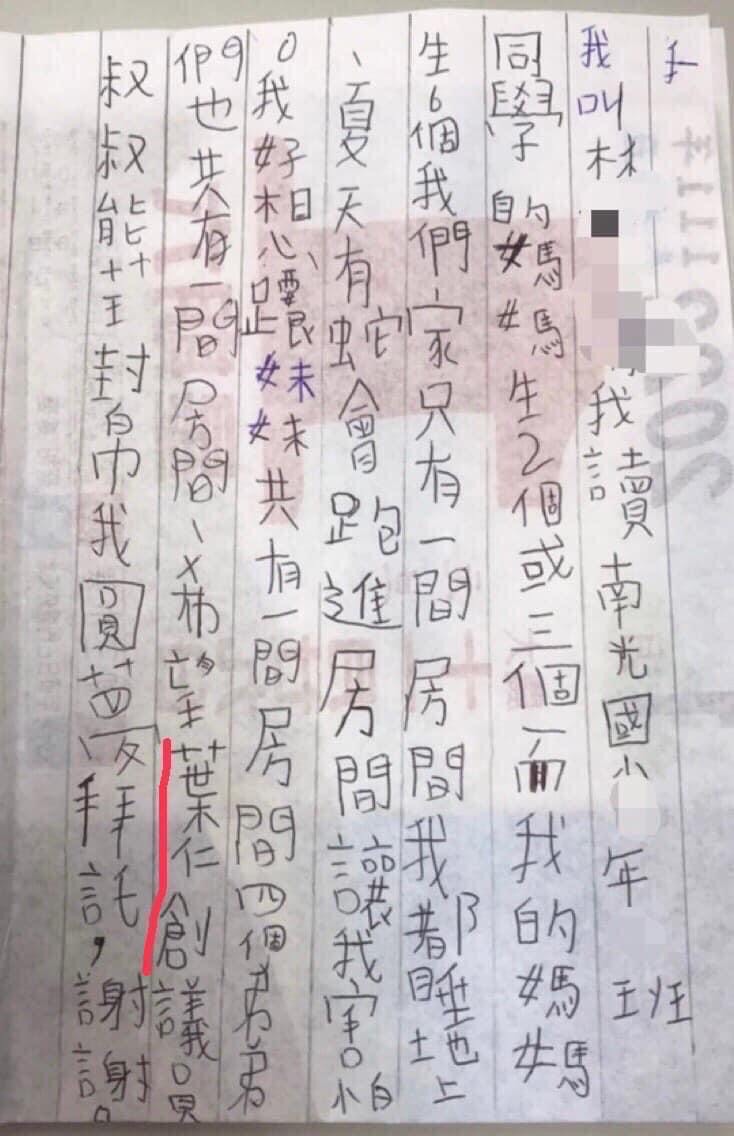 我叫林 我讀南光國小 年 班
同學的媽媽生2個或三個而我的媽媽
生6個我們家只有一間房間我都睡地上
、夏天有蛇會跑進房間讓我害怕
。我好想跟妹妹共有一間房間四個弟弟
們也共有一間房間、希望葉仁創議員
叔叔能完封幫我圓夢、拜託,謝謝。